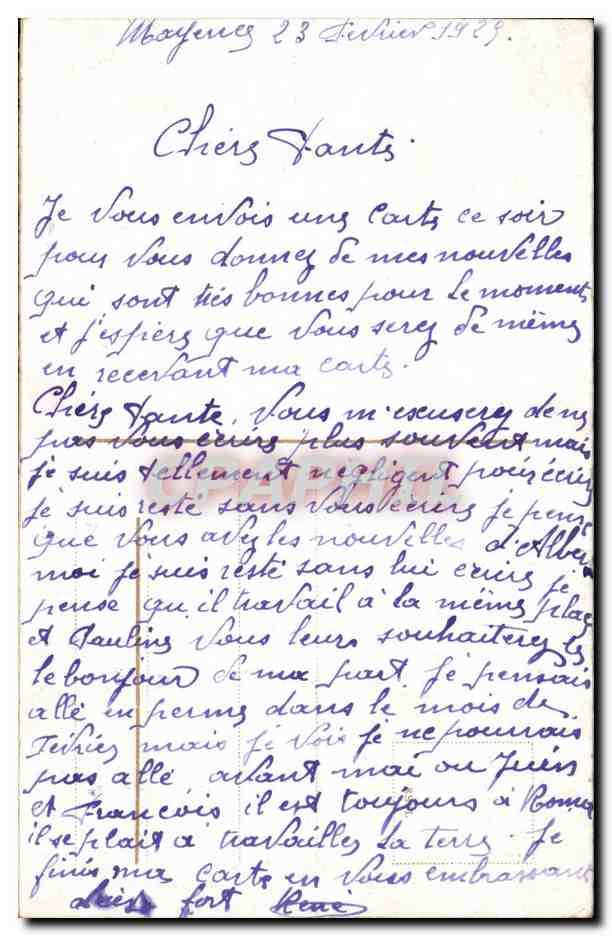 Mayence 23 Février 1929.
Chère Tante.
Je vous envois une carte ce soir
pour vous donnez de mes nouvelles
qui sont très bonnes pour le moment
et j'espère que vous serez de même
en recevant ma carte.
Chère Tante, vous m'excuserez de ne
pas vous écrire plus souvent mais
je suis tellement négligent pour écrire
je suis resté sans vous écrire je pense
que vous avez les nouvelles d'Albert
moi je suis resté sans lui écrire je
pense qu'il travail à la même place
et Pauline vous leurs souhaiterez
le bonjour de ma part. je pensais
allé en perme dans le mois de
Février mais je vois je ne pourrais
pas allé avant mai ou Juin
et François il est toujours à
il se plait a travailler la terre. Je
finis ma carte en vous embrassant
fort René